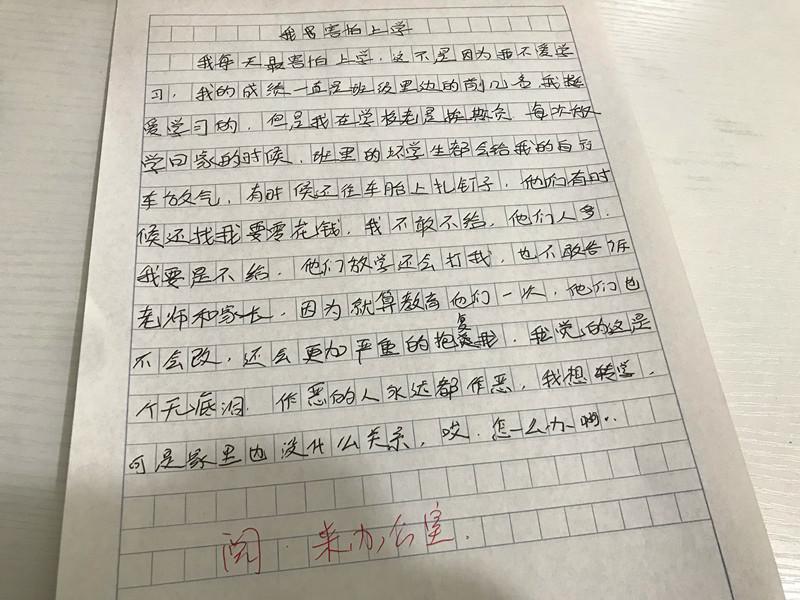 我最害怕上学
我每天最害怕上学，这不是因为我不爱学
习，我的成绩一直是班级里边的前几名我挺
爱学习的，但是我在学校老是挨欺负，每次放
学回家的时候，班里的坏学生都会给我的自行
车放气，有时候还往车胎上扎钉子，他们有时
候还找我要零花钱，我不敢不给，他们人多，
我要是不给，他们放学还会打我，也不敢告诉
老师和家长，因为就算教育他们一次，他们也
不会改，还会更加严重的抱复我，我觉的这是
个无底洞，作恶的人永远都作恶，我想转学，
可是家里也没什么关系，哎，怎么办啊..
阅.来办公室.